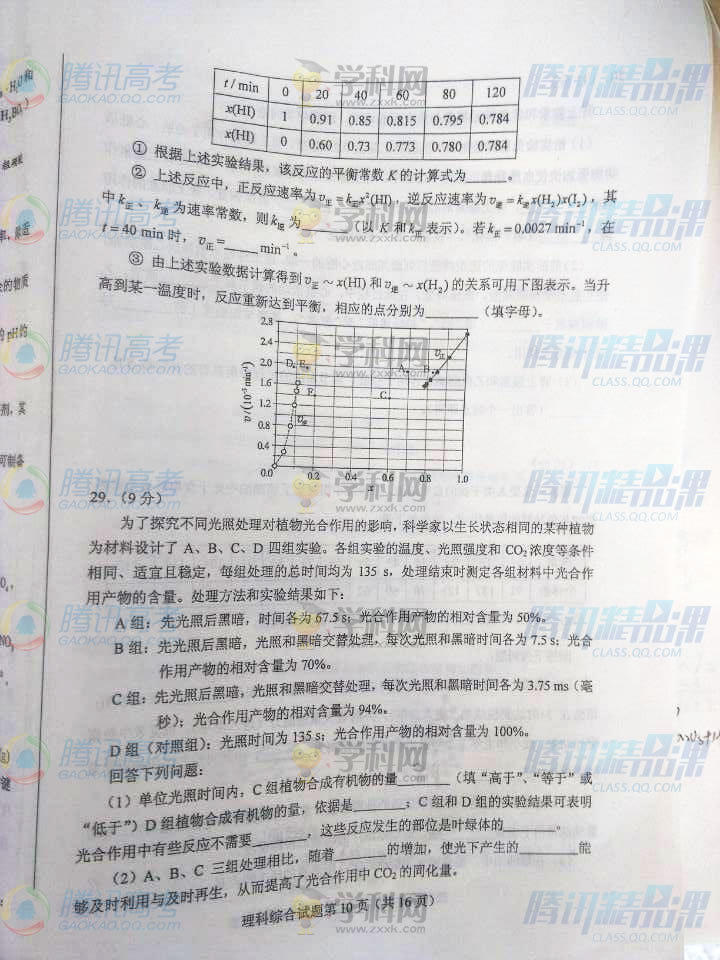 t / min 0 20 40 60 80 120
x(HI) 1 0.91 0.85 0.815 0.795 0.784
x(HI) 0 0.60 0.73 0.773 0.780 0.784
① 根据上述实验结果,该反应的平衡常数 K 的计算式为______。
② 上述反应中,正反应速率为v正 = k正x²(HI),逆反应速率为v逆 = k逆x(H₂)x(I₂),其
中k正、k逆为速率常数,则k逆为______(以 K 和k正表示)。若k正 = 0.0027 min⁻¹,在
t = 40 min 时,v正=______min⁻¹。
③ 由上述实验数据计算得到v正~x(HI)和v逆~x(H₂)的关系可用下图表示。当升
高到某一温度时,反应重新达到平衡,相应的点分别为________(填字母)。
2.8
2.4
2.0
1.6
1.2
0.8
0.4
0.0 0.2 0.4 0.6 0.8 1.0
x
D
E
F
A
B
C
v正
v逆
29.(9 分)
为了探究不同光照处理对植物光合作用的影响,科学家以生长状态相同的某种植物
为材料设计了 A、B、C、D 四组实验。各组实验的温度、光照强度和 CO₂ 浓度等条件
相同、适宜且稳定,每组处理的总时间均为 135 s,处理结束时测定各组材料中光合作
用产物的含量。处理方法和实验结果如下:
A 组:先光照后黑暗,时间各为 67.5 s;光合作用产物的相对含量为 50%。
B 组:先光照后黑暗,光照和黑暗交替处理,每次光照和黑暗时间各为 7.5 s;光合
作用产物的相对含量为 70%。
C 组:先光照后黑暗,光照和黑暗交替处理,每次光照和黑暗时间各为 3.75 ms(毫
秒);光合作用产物的相对含量为 94%。
D 组(对照组):光照时间为 135 s;光合作用产物的相对含量为 100%。
回答下列问题:
(1)单位光照时间内,C 组植物合成有机物的量________(填“高于”、“等于”或
“低于”)D 组植物合成有机物的量,依据是________;C 组和 D 组的实验结果可表明
光合作用中有些反应不需要________,这些反应发生的部位是叶绿体的________。
(2)A、B、C 三组处理相比,随着________的增加,使光下产生的________能
够及时利用与及时再生,从而提高了光合作用中 CO₂ 的同化量。
理科综合试题第 10 页(共 16 页)
腾讯高考
GAOKAO.QQ.COM
学科网
www.zxxk.com
腾讯精品课
CLASS.QQ.COM